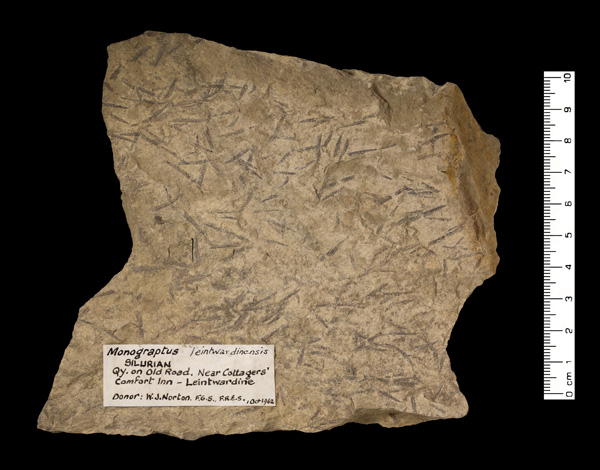 Monograptus leintwardinensis
SILURIAN
Qy. on Old Road. Near Cottagers'
Comfort Inn - Leintwardine
Donor: W.J. Norton. F.G.S., F.R.E.S., Oct 1962
10
9
8
7
6
5
4
3
2
1
0 cm